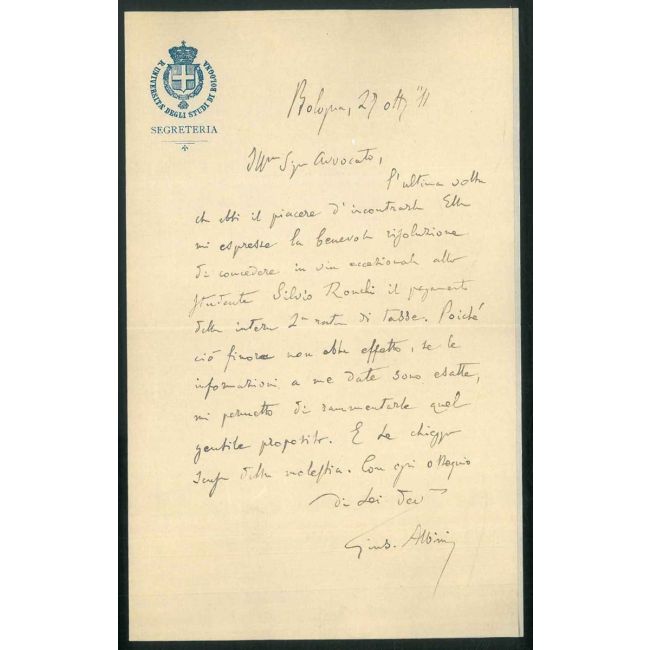 R. UNIVERSITÀ DEGLI STUDI DI BOLOGNA
SEGRETERIA
Bologna, 27 ott. '11
Ill.mo Sign. Avvocato,
l'ultima volta
che ebbi il piacere d'incontrarla Ella
mi espresse la benevola risoluzione
di concedere in via eccezionale allo
studente Silvio Ronchi il pagamento
della intera 2ª rata di tasse. Poiché
ciò finora non ebbe effetto, se le
informazioni a me date sono esatte,
mi permetto di rammentarle quel
gentile proposito. E Le chieggo
scusa della molestia. Con ogni ossequio
di Lei dev.
Gius. Albini